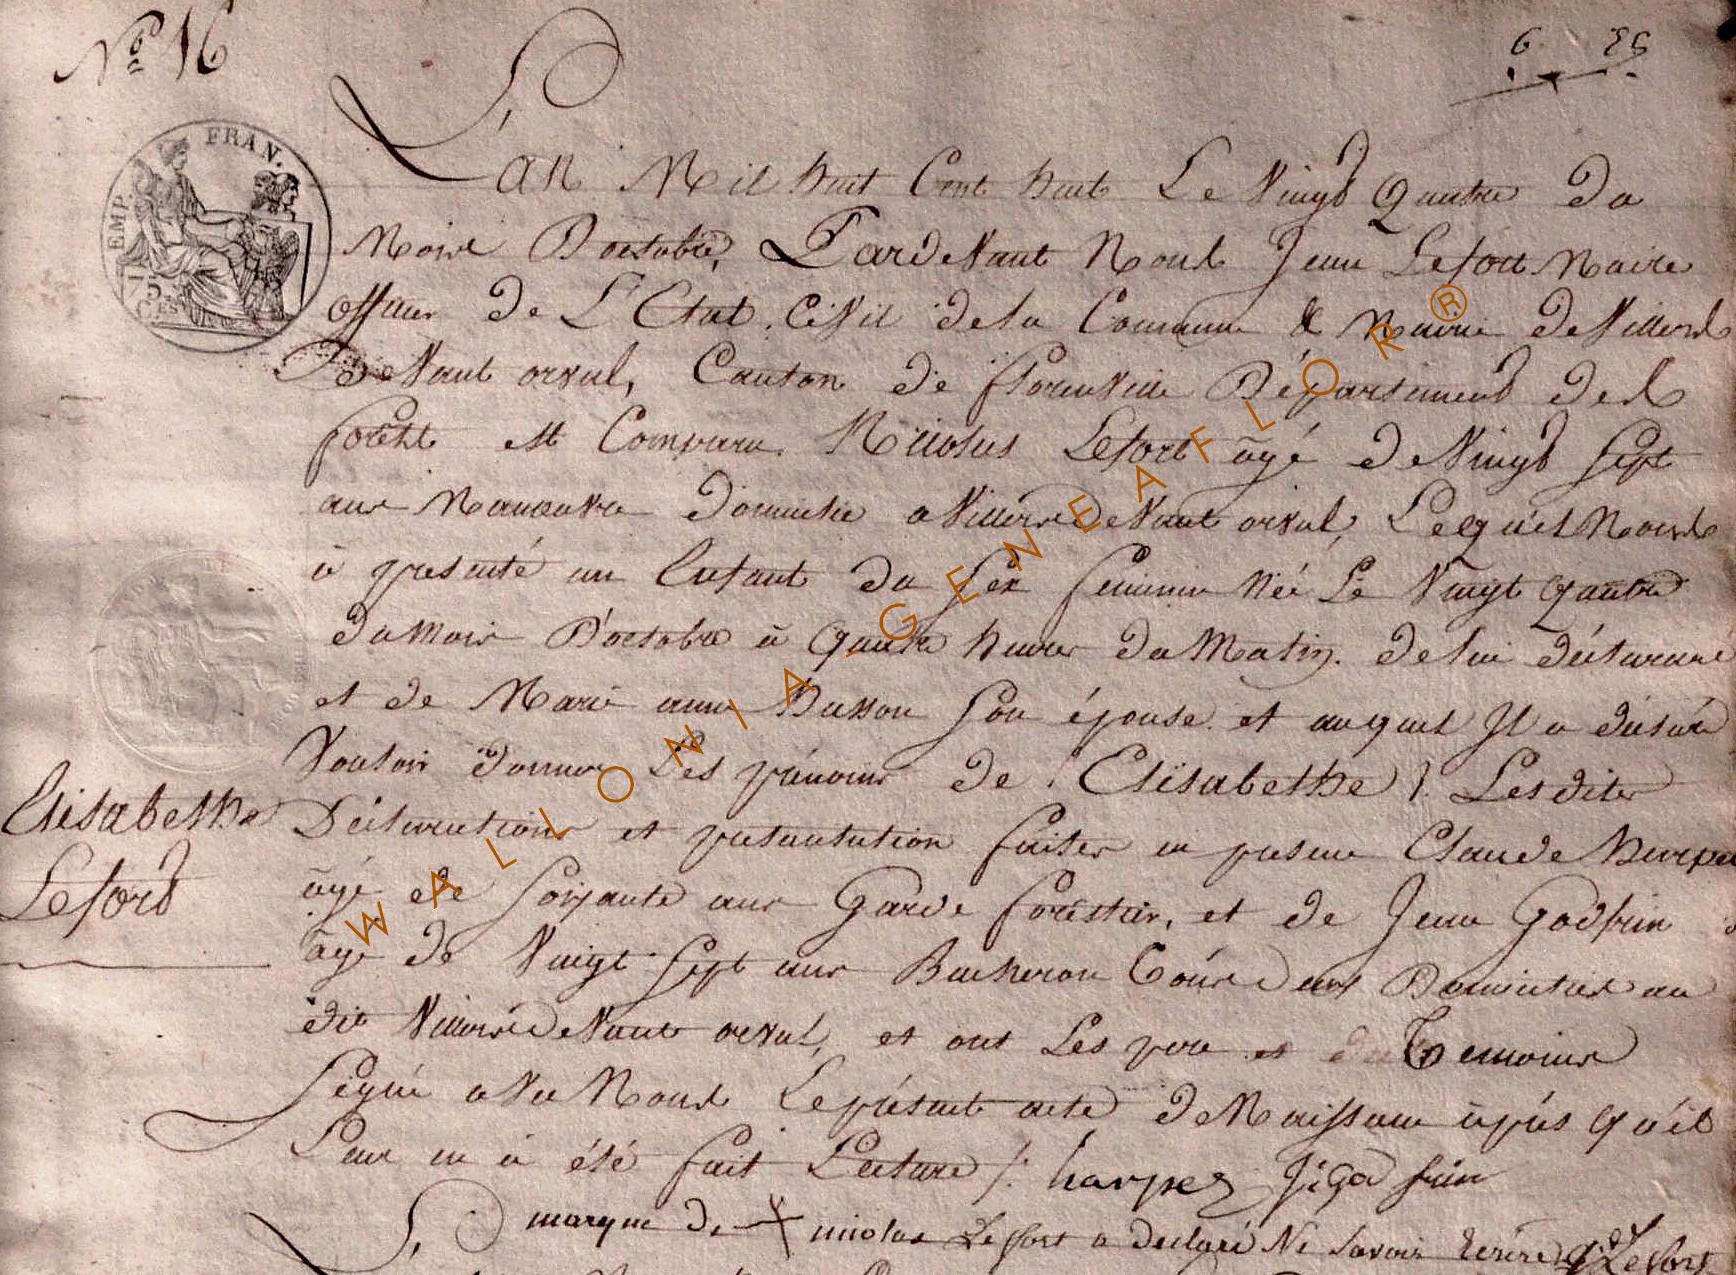 No 16
6 85
EMP. FRAN.
15 CES
L'an Mil huit Cent huit Le Vingt Quatre du
Mois D'octobre, Pardevant Nous Jean Lefort Maire
officier de L'Etat Civil dela Commune & Mairie deVillers
DeVant orval, Canton de florenville Département des
forêts est Comparu Nicolas Lefort âgé deVingt sept
ans Manœuvre domicilié aVillersDeVant orval, Lequ'el Nous
à présenté un Enfant du sex feminin Née Le Vingt quatre
dumois D'octobre à quatre heures duMatin. delui déclarant
et de Marie anne Husson son épouse et auquel Il a déclaré
Vouloir donner Les prénoms de Elisabethe Lesdites
Déclarations et présentation faites en présence Claude Harpez
âgé de soixante ans Garde forestier, et de Jean Godfrin
âgé de Vingt sept ans Bucheron tous deux Domiciliés au
dit VillersDeVant orval, et ont Les père et Temoins
signé aVec Nous Leprésent acte deNaissance àprés qu'il
Leur en à été fait Lecture /: harpez JJ God frin
marque de nicolas Lefort a declaré Ne Savoir Ecrire J: Lefort
Elisabethe
Lefort
WALLONIA - GENEAFLOR ®